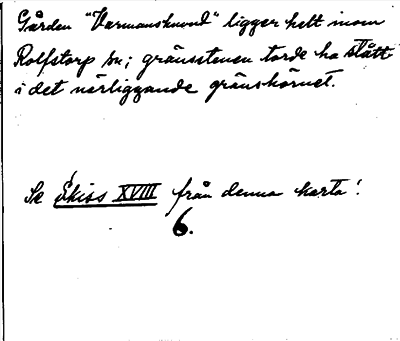 Gården "Varmanshund" ligger helt inom
Rolfstorp sn; gränsstenen torde ha stått
i det närliggande gränshörnet.
Se Skiss XVIII från denna karta!
6.